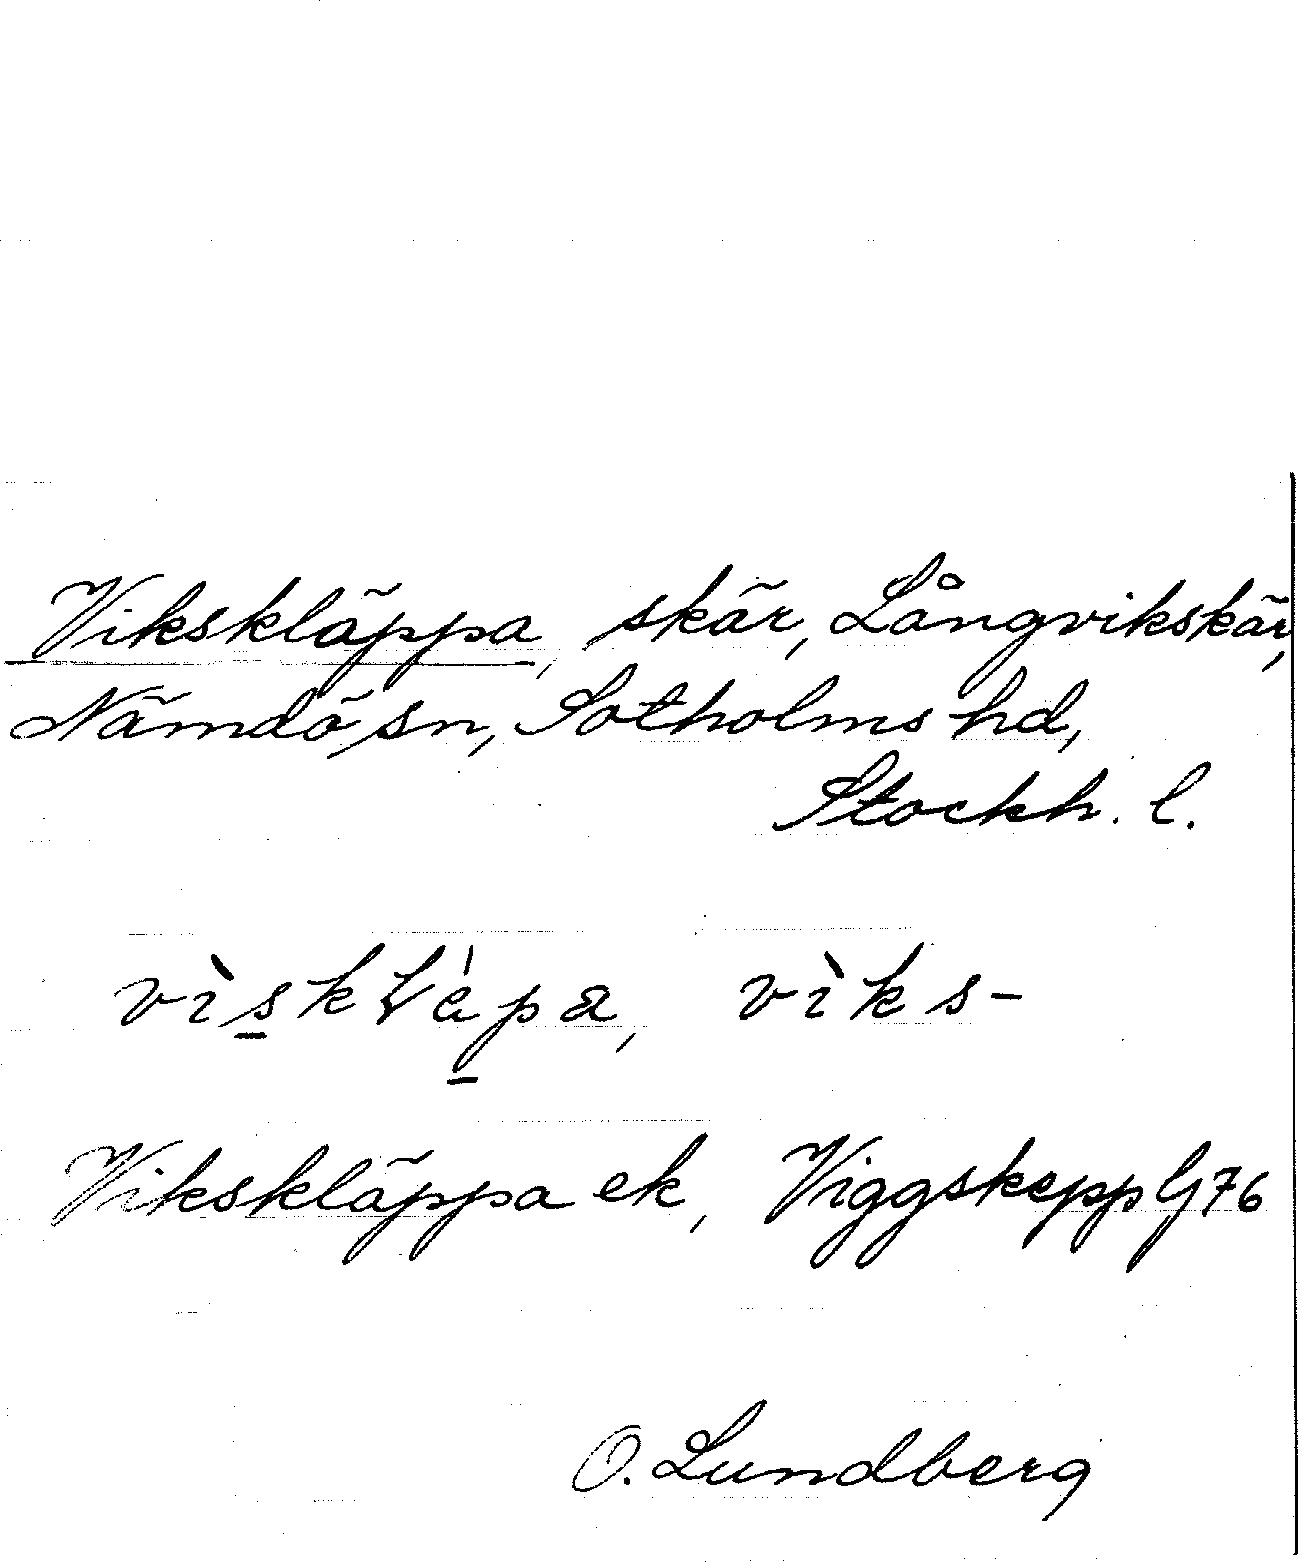 Vikskläppa, skär, Långvikskär,
Nämdö sn, Sotholms hd,
Stockh. l.
vìskḷèpa, vìks-
Vikskläppa ek, Viggskepp G76
O. Lundberg